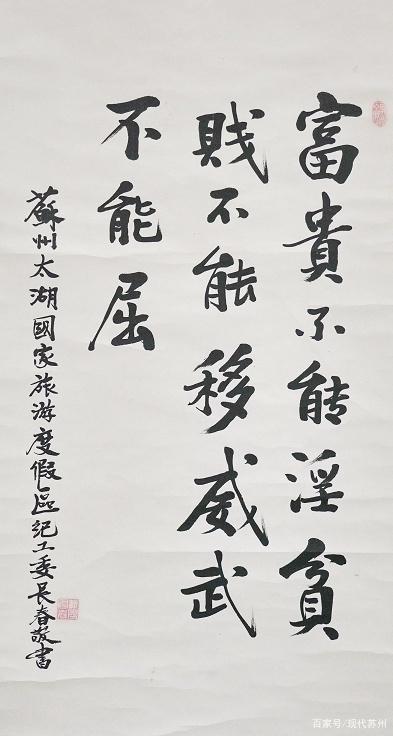 富貴不能淫貧
賤不能移威武
不能屈
蘇州太湖國家旅游度假區紀工委長春敬書
百家号/现代苏州